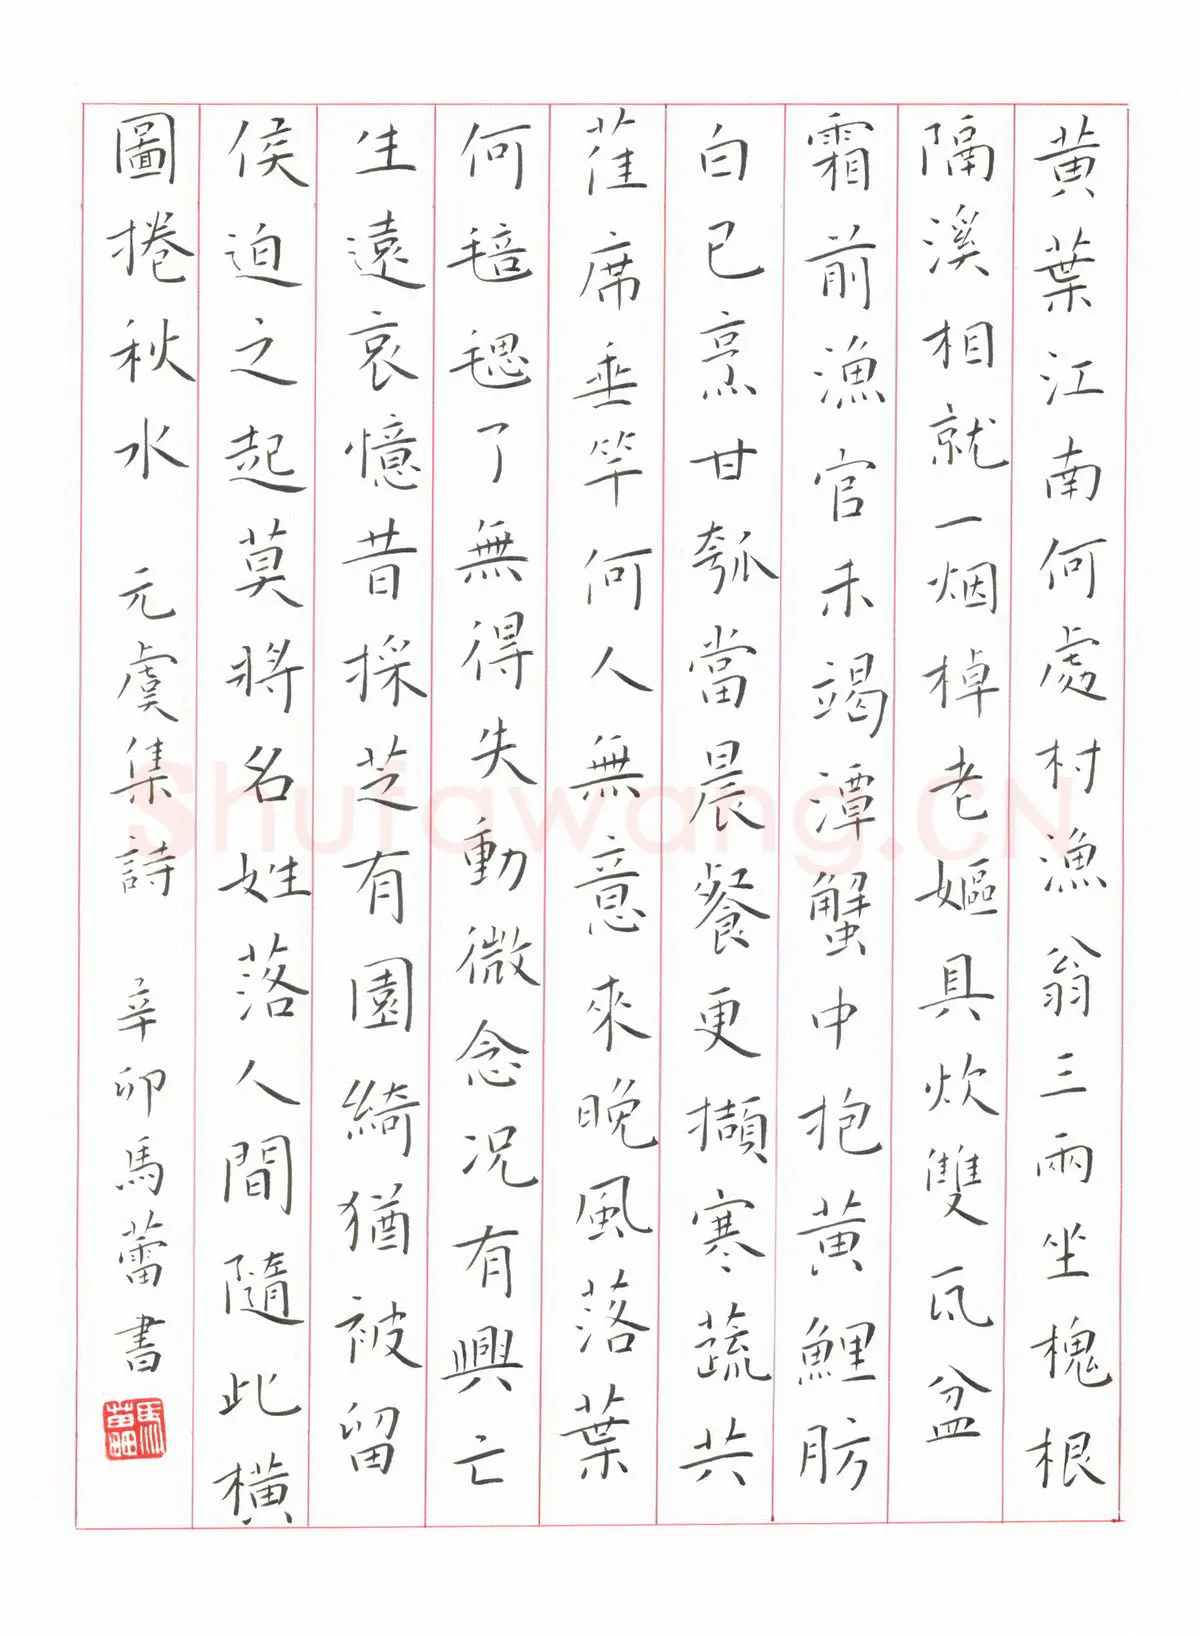 黃葉江南何處村漁翁三兩坐槐根
隔溪相就一烟棹老嫗具炊雙瓦盆
霜前漁官未竭潭蟹中抱黃鯉肪
白已烹甘瓠當晨餐更擷寒蔬共
萑席垂竿何人無意來晚風落葉
何毰毸了無得失動微念况有興亡
生遠哀憶昔採芝有園綺猶被留
侯迫之起莫將名姓落人間隨此橫
圖捲秋水 元虞集詩 辛卯馬蕾書
馬蕾
Shufawang.CN